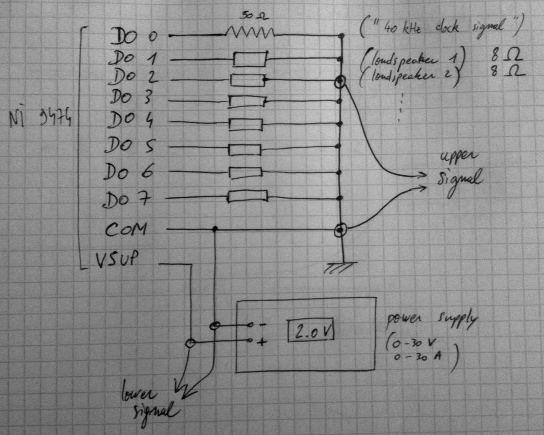 50 Ω
DO 0 ("40 kHz clock signal")
DO 1 (loudspeaker 1) 8 Ω
DO 2 (loudspeaker 2) 8 Ω
DO 3
NI 9474
DO 4
DO 5
upper
signal
DO 6
DO 7
COM
VSUP
- 2.0 V
+
power supply
(0-30 V
0-30 A)
lower
signal